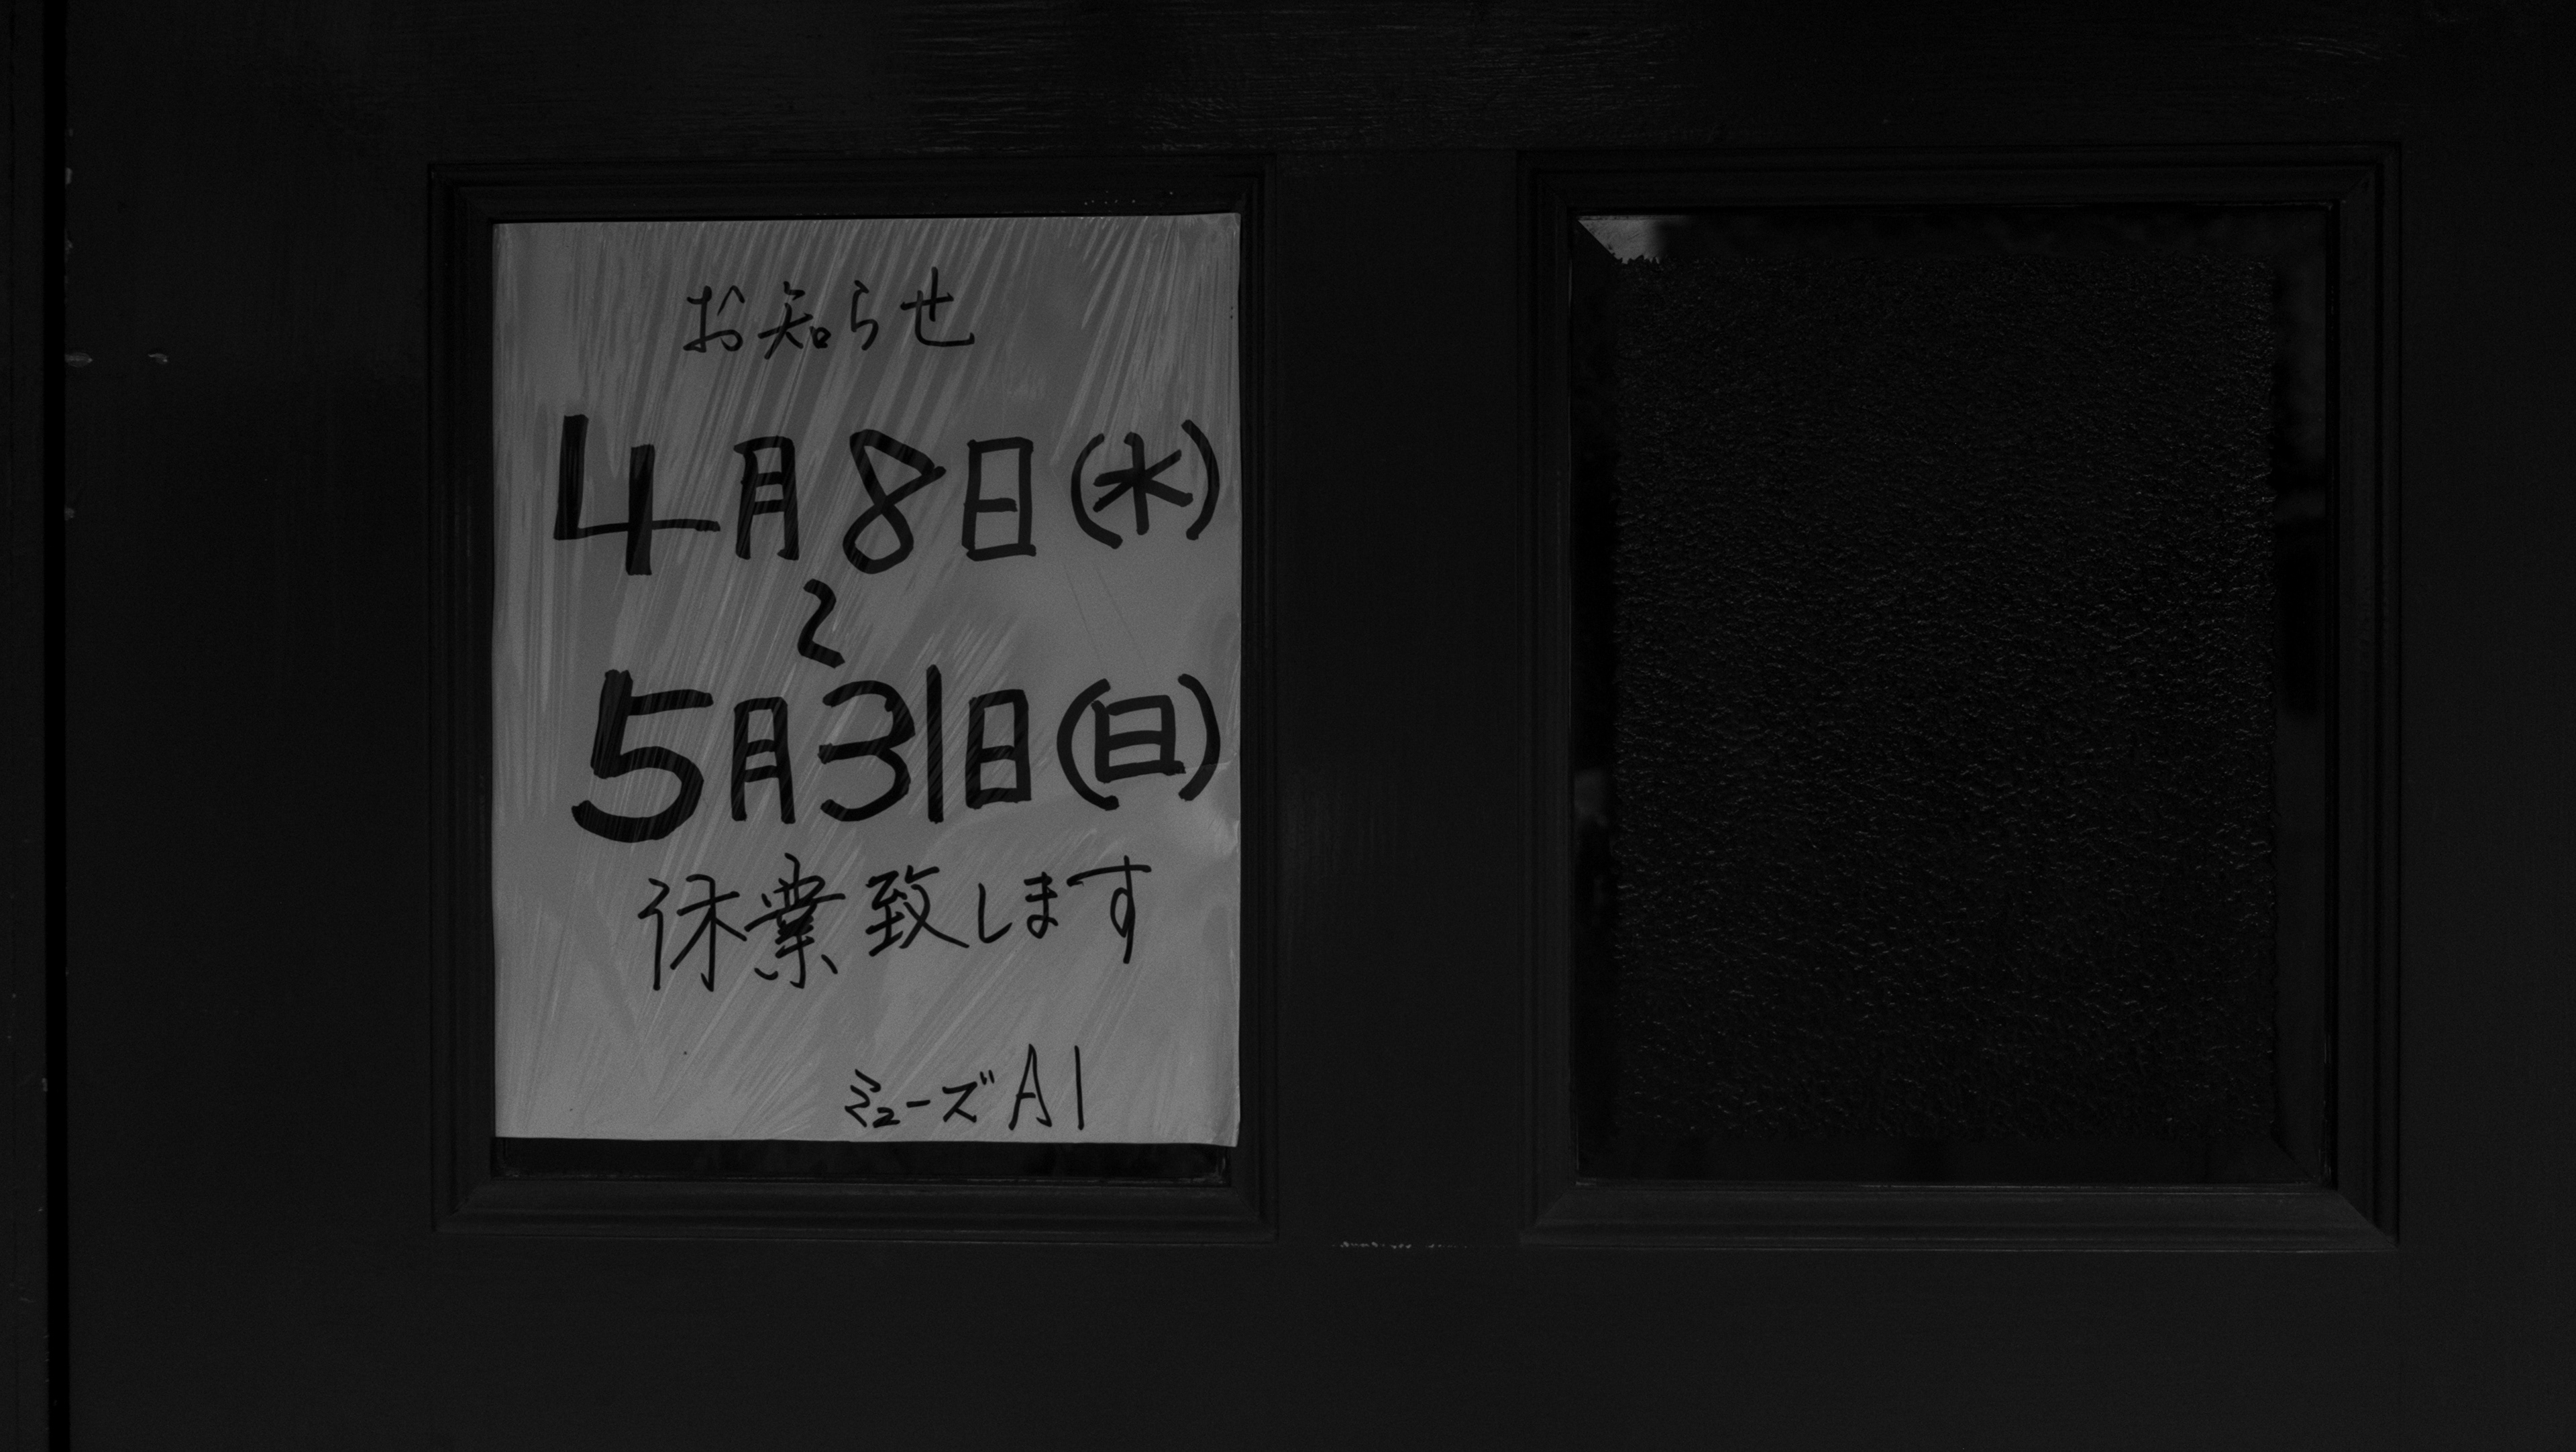 お知らせ
4月8日(水)
〜
5月31日(日)
休業致します
ミューズAI